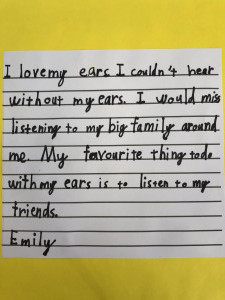 I love my ears. I couldn't hear
without my ears. I would miss
listening to my big family around
me. My favourite thing to do
with my ears is to listen to my
friends.
Emily